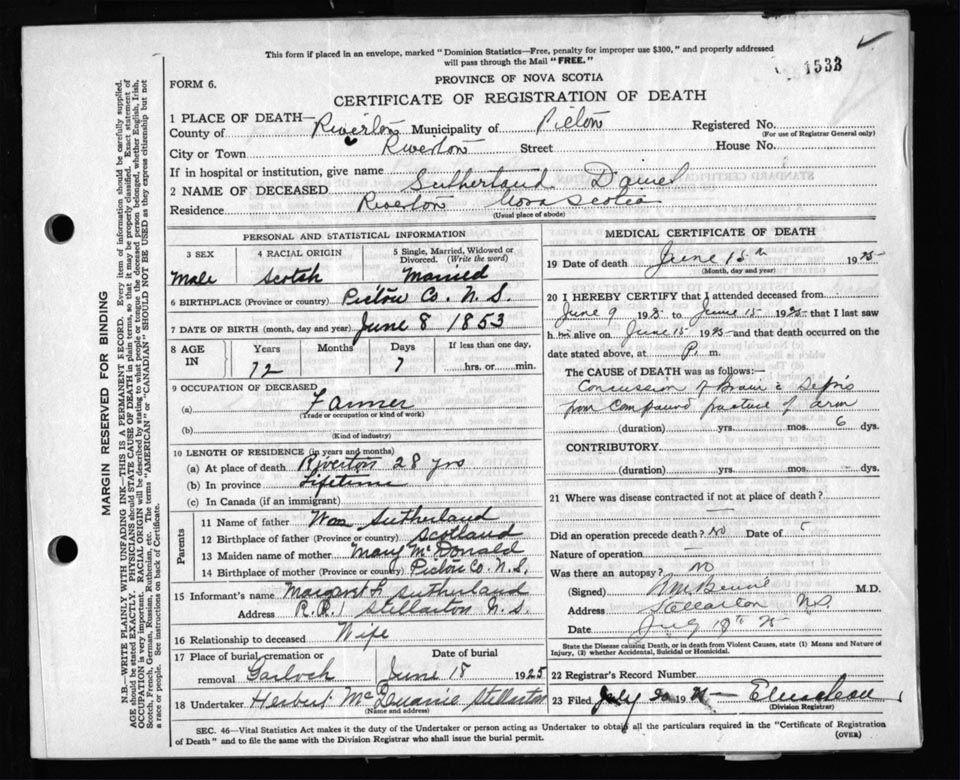 This form if placed in an envelope, marked "Dominion Statistics—Free, penalty for improper use $300," and properly addressed
will pass through the Mail "FREE."
1533
PROVINCE OF NOVA SCOTIA
FORM 6.
CERTIFICATE OF REGISTRATION OF DEATH
1 PLACE OF DEATH—
County of Riverton Municipality of Pictou Registered No.
(For use of Registrar General only)
City or Town Riverton Street House No.
If in hospital or institution, give name
2 NAME OF DECEASED Sutherland Daniel
Residence Riverton Nova Scotia
(Usual place of abode)
PERSONAL AND STATISTICAL INFORMATION
3 SEX 4 RACIAL ORIGIN 5 Single, Married, Widowed or Divorced. (Write the word)
Male Scotch Married
6 BIRTHPLACE (Province or country) Pictou Co. N.S.
7 DATE OF BIRTH (month, day and year) June 8 1853
8 AGE IN Years Months Days If less than one day,
72 7 hrs. or min.
9 OCCUPATION OF DECEASED
(a) Farmer
(Trade or occupation or kind of work)
(b)
(Kind of industry)
10 LENGTH OF RESIDENCE (in years and months)
(a) At place of death Riverton 28 yrs
(b) In province Lifetime
(c) In Canada (if an immigrant)
Parents
11 Name of father Wm Sutherland
12 Birthplace of father (Province or country) Scotland
13 Maiden name of mother Mary McDonald
14 Birthplace of mother (Province or country) Pictou Co. N.S.
15 Informant's name Margaret Sutherland
Address R.R.1 Stellarton N.S.
16 Relationship to deceased Wife
17 Place of burial, cremation or removal Date of burial
Garloch June 18 1925
18 Undertaker Herbert Stellarton
(Name and address)
MEDICAL CERTIFICATE OF DEATH
19 Date of death June 15th 1925
(Month, day and year)
20 I HEREBY CERTIFY that I attended deceased from
June 9 1925 to June 15 1925 that I last saw
him alive on June 15 1925 and that death occurred on
date stated above, at P. m.
The CAUSE OF DEATH was as follows:
Concussion of Brain & Sepsis
from compound fracture of arm
(duration) yrs. mos. 6 dys.
CONTRIBUTORY.
(duration) yrs. mos. dys.
21 Where was disease contracted if not at place of death?
—
Did an operation precede death? No Date of
Nature of operation —
Was there an autopsy? No
(Signed) M.D.
Address Stellarton N.S.
Date July 18th 25
State the Disease causing Death, or in death from Violent Causes, state (1) Means and Nature of
Injury, (2) whether Accidental, Suicidal or Homicidal.
22 Registrar's Record Number
23 Filed July 20 19
(Division Registrar)
SEC. 46—Vital Statistics Act makes it the duty of the Undertaker or person acting as Undertaker to obtain all the particulars required in the "Certificate of Registration
of Death" and to file the same with the Division Registrar who shall issue the burial permit.
(OVER)
MARGIN RESERVED FOR BINDING
N.B.—WRITE PLAINLY WITH UNFADING INK—THIS IS A PERMANENT RECORD. Every item of information should be carefully supplied.
AGE should be stated EXACTLY. PHYSICIANS should STATE CAUSE OF DEATH in plain terms, so that it may be properly classified. Exact statement of
OCCUPATION is very important. RACIAL ORIGIN will be described by stating to what people or tongue the deceased person belonged, whether English, Irish,
Scotch, French, German, Russian, Ruthenian, etc. The terms "AMERICAN" or "CANADIAN" SHOULD NOT BE USED as they express citizenship but not
a race or people. See instructions on back of Certificate.